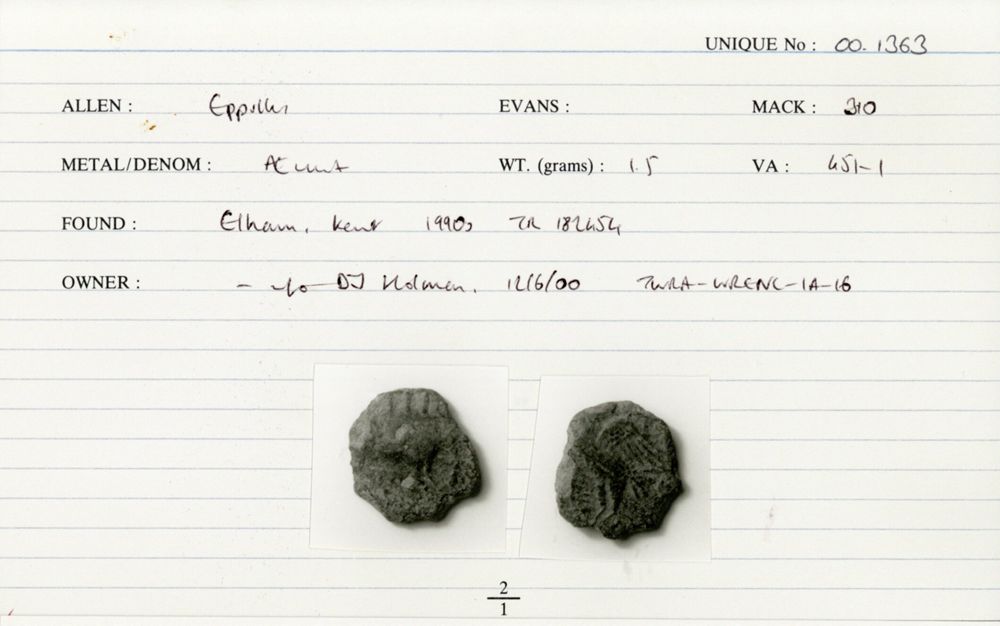 UNIQUE No : 00.1363
ALLEN : Eppillus EVANS : MACK : 310
METAL/DENOM : Æ unit WT. (grams) : 1.5 VA : 451-1
FOUND : Elham, Kent 1990s TR 182454
OWNER : - DJ Holman, 12/6/00
2
1